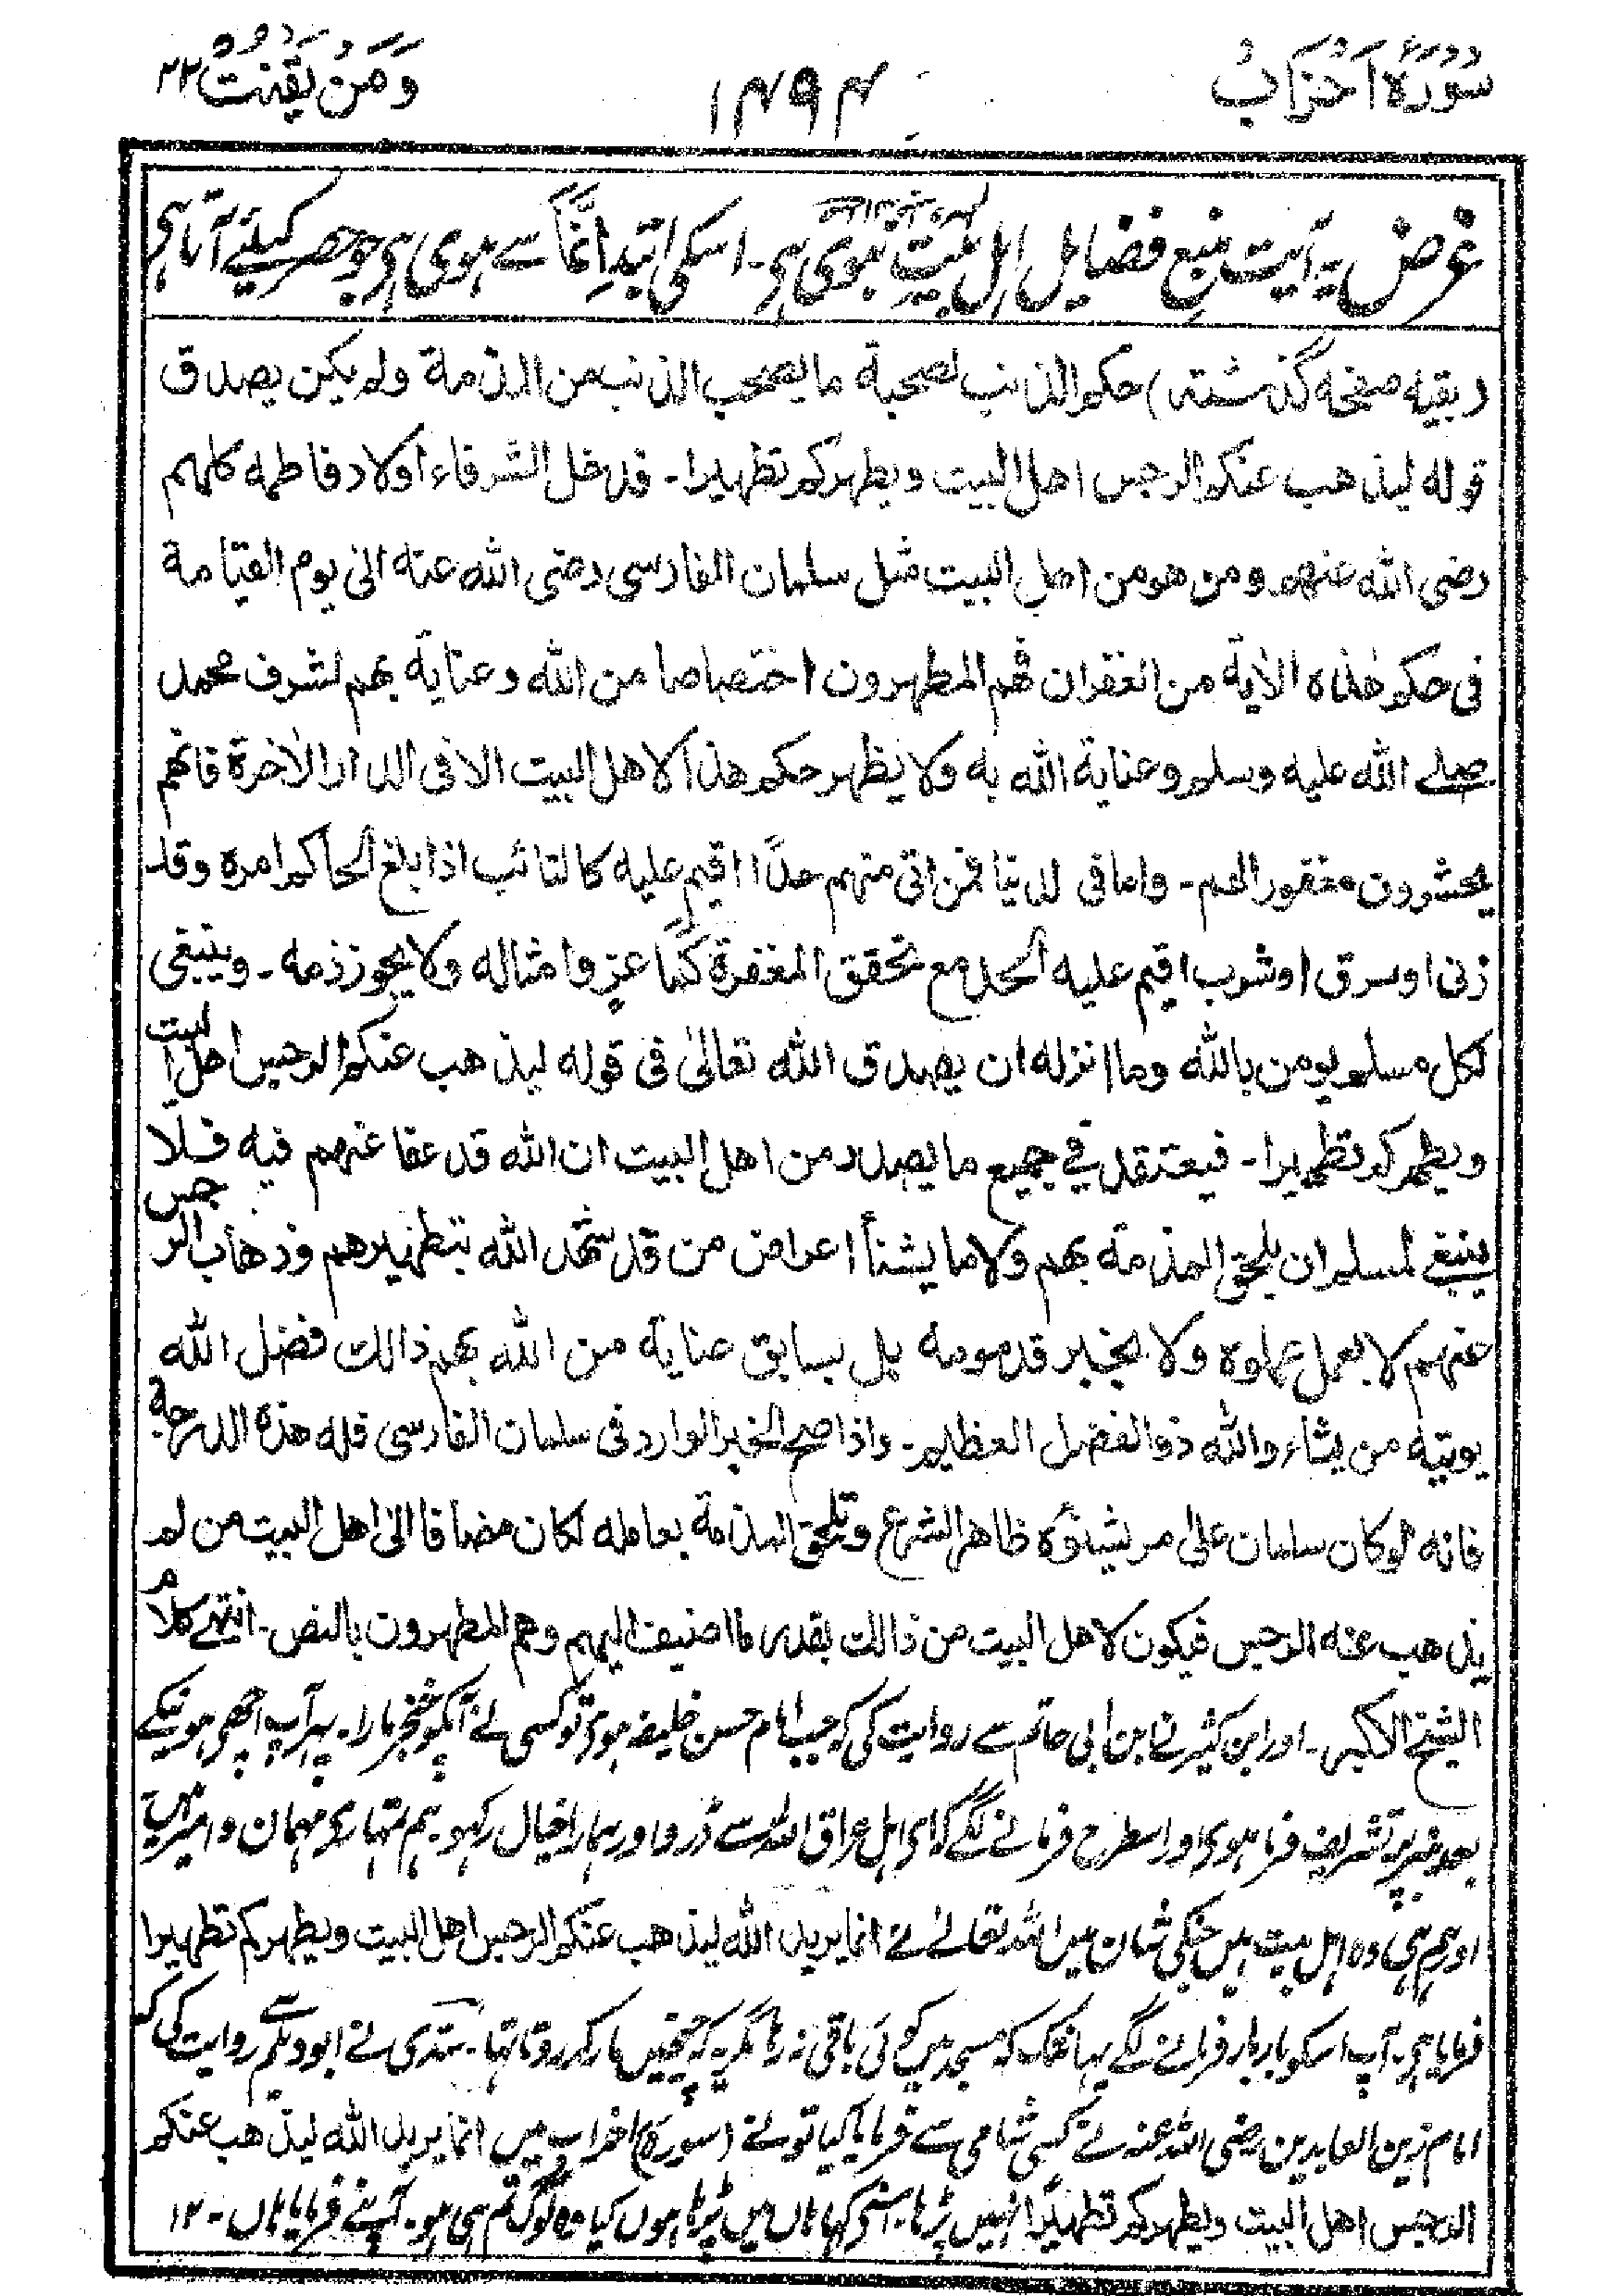 سُوْرَةُ اَحْزَابْ
۱۴۹۴
وَمَنْ يَقْنُتْ ۲۲
غرض یہ آیت منبع فضایل اہل بیت نبوی ہی۔ اسکی ابتدا اِنَّمَا سے ہوی ہی جو حصر کیلئے آتا ہی
(بقیہ صفحہ گذشتہ) حکم الذنب لصحبة ما يصحب الذنب من المذمة ولم يكن يصدق
قوله ليذهب عنكم الرجس اهل البيت ويطهركم تطهيرا۔ فدخل الشرفاء اولاد فاطمه كلهم
رضى الله عنهم ومن هو من اهل البيت مثل سلمان الفارسى رضى الله عنه الىٰ يوم القيامة
فى حكم هٰذه الاٰية من الغفران فهم المطهرون اختصاصا من الله وعناية بهم لشرف محمد
صلے الله عليه وسلم وعناية الله به ولا يظهر حكم هذا لاهل البيت الا فى الدار الاٰخرة فانهم
يحشرون مغفور الهم۔ واما فى الدنيا فمن اتى منهم حدًّا اقيم عليه كالتائب اذا بلغ الحاكم امره وقد
زنى او سرق او شرب اقيم عليه الحد مع تحقق المغفرة كما عزو امثاله ولا يجوز ذمه۔ وينبغى
لكل مسلم يومن بالله وما انزله ان يصدق الله تعالىٰ فى قوله ليذهب عنكم الرجس اهل البيت
ويطهركم تطهيرا۔ فيعتقد في جميع ما يصدر من اهل البيت ان الله قد عفا عنهم فيه فلا
ينبغے لمسلم ان يلحق المذمة بهم ولا ما يشنأ اعراض من قد شهد الله بتطهيرهم وذهاب الرجس
عنهم لا بعمل عملوه ولا بخير قدموه بل بسابق عناية من الله بهم ذالك فضل الله
يوتيه من يشاء والله ذو الفضل العظيم۔ واذا صح الخبر الوارد فى سلمان الفارسى فله هذه الدرجة
فانه لو كان سلمان علىٰ مر يشنؤه ظاهر الشرع وتلحق المذمة بعامله لكان مضافا الىٰ اهل البيت من لم
يذهب عنه الرجس فيكون لاهل البيت من ذالك بقدر ما اضيف اليهم وهم المطهرون بالنص۔ انتهےٰ كلام
الشيخ الاكبر۔ اور ابن کثیر نے ابن ابی حاتم سے روایت کی کہ جب امام حسن خلیفہ ہوی تو کسی نے آپکو خنجر مارا۔ پہر آپ اچھی ہونیکے
بعد منبر پر تشریف فرما ہوی اور اسطرح فرمانے لگے کہ ای اہل عراق اللہ سے ڈرو اور ہمارا خیال رکہو۔ ہم تمہاری مہمان و امیر ہیں
اور ہم ہی وہ اہل بیت ہیں جنکی شان میں اللہ تعالےٰ نے انما يريد الله ليذهب عنكم الرجس اهل البيت ويطهركم تطهيرا
فرمایا ہی۔ آپ اسکو بار بار فرمانے لگے یہانتک کہ مسجد میں کوئی باقی نہ رہا مگر یہ کہ چیخیں مار کر روتا تہا۔ سدّی نے ابو دیلم سے روایت کی کہ
امام زین العابدین رضی اللہ عنہ نے کسی شامی سے فرمایا کیا تو نے (سورۃ) احزاب میں انما يريد الله ليذهب عنكم
الرجس اهل البيت ويطهركم تطهيرًا نہیں پڑہا۔ اسنے کہا ہاں میں پڑہا ہوں کیا وہ لوگ تم ہی ہو۔ آپنے فرمایا ہاں۔ ۱۲